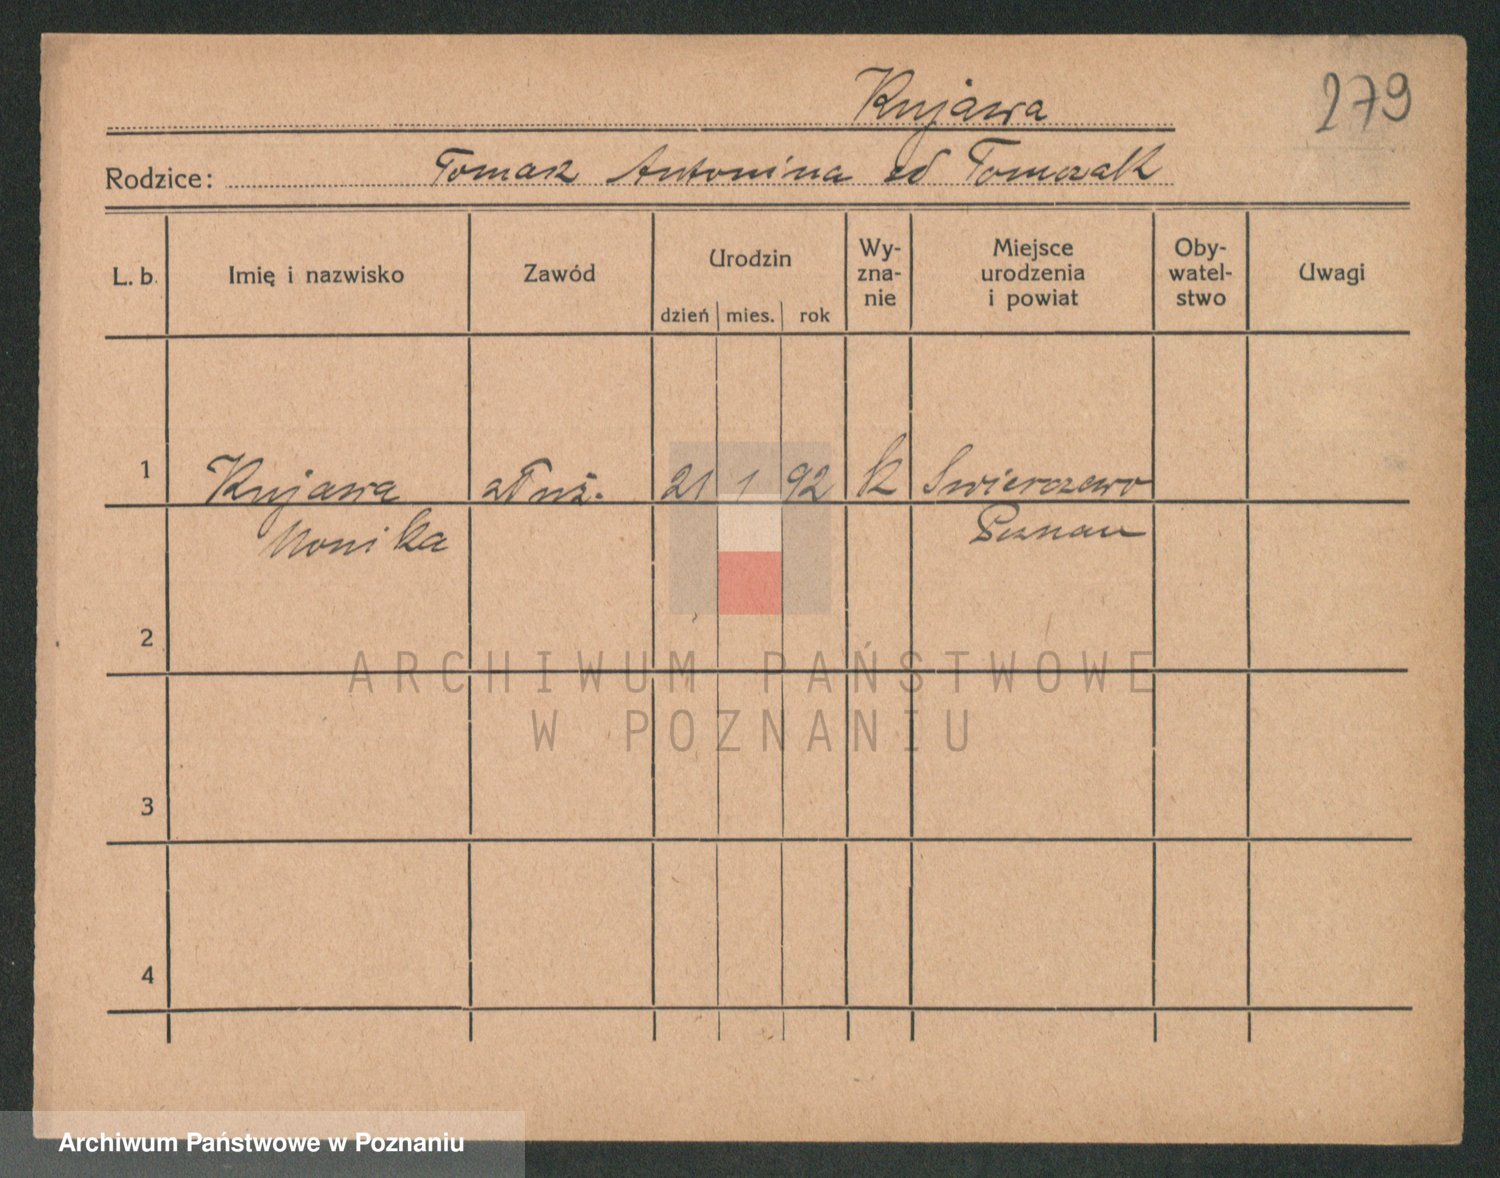 Kujawa
279
Rodzice: Tomasz Antonina zd Tomczak
L. b. Imię i nazwisko Zawód Urodzin dzień mies. rok Wy-zna-nie Miejsce urodzenia i powiat Oby-watel-stwo Uwagi
1 Kujawa służ. 21 1 92 k Swierczewo
Monika Poznan
2
3
4
ARCHIWUM PAŃSTWOWE
W POZNANIU
Archiwum Państwowe w Poznaniu